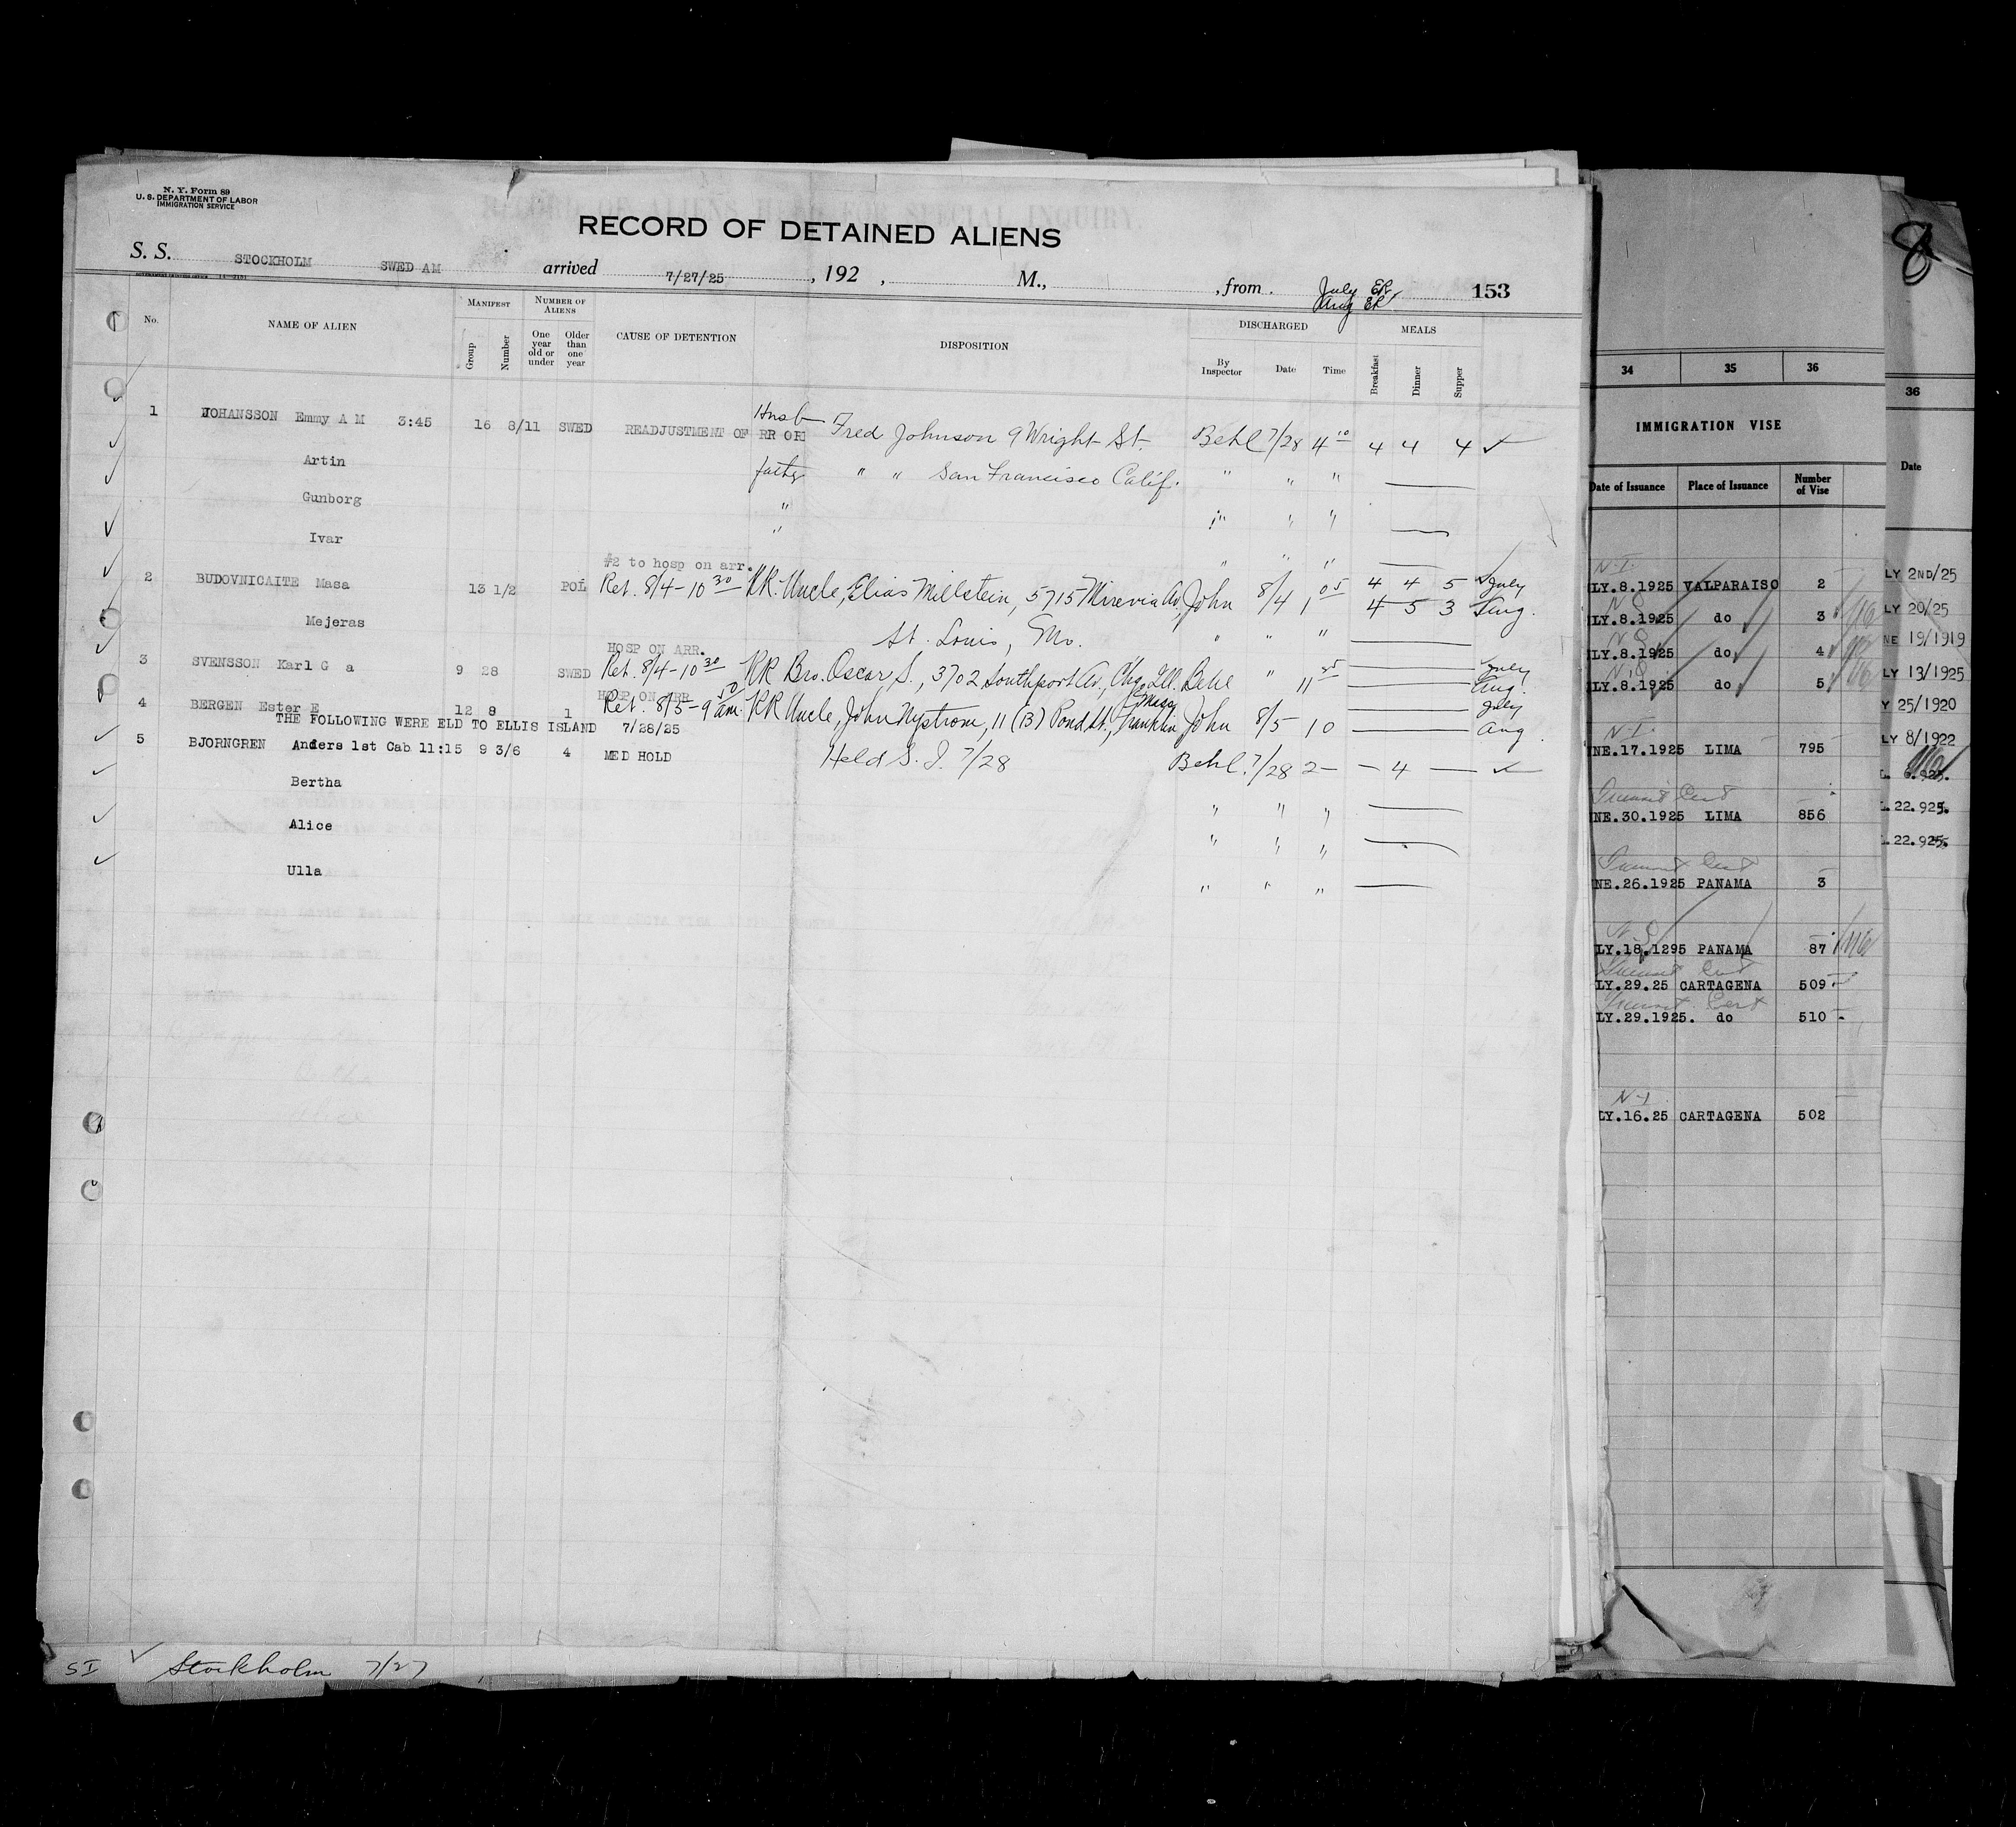 N. Y. Form 89
U. S. DEPARTMENT OF LABOR
IMMIGRATION SERVICE
RECORD OF DETAINED ALIENS
S. S. STOCKHOLM SWED AM arrived 7/27/25, 192 , M., , from July ER. 153
Aug ER.
No. NAME OF ALIEN MANIFEST Group Number NUMBER OF ALIENS One year old or under Older than one year CAUSE OF DETENTION DISPOSITION DISCHARGED By Inspector Date Time MEALS Breakfast Dinner Supper
Husb
1 JOHANSSON Emmy A M 3:45 16 8/11 SWED READJUSTMENT OF RR OR Fred Johnson 9 Wright St. Behl 7/28 4 10 4 4 4 ✓
Artin father " " San Francisco Calif. " " "
Gunborg " " " "
Ivar " " " "
#2 to hosp on arr.
2 BUDOVNICAITE Masa 13 1/2 POL Ret. 8/4-10 30 RR. Uncle, Elias Millstein, 5715 Av, John 8/4 1 05 4 4 5 ✓ July
4 5 3 Aug.
Mejeras St. Louis, Mo. " " "
HOSP ON ARR.
3 SVENSSON Karl G a 9 28 SWED Ret. 8/4-10 30 RR Bro. Oscar S., 3702 Southport Av., Chg. Ill. Behl " 11 25 July
Aug.
HOSP ON ARR
4 BERGEN Ester E 12 8 1 Ret. 8/5-9 50 am. RR Uncle, John Nystrom, 11 (B) Pond St., Franklin Mass John 8/5 10 July
Aug.
THE FOLLOWING WERE ELD TO ELLIS ISLAND 7/28/25
5 BJORNGREN Anders 1st Cab 11:15 9 3/6 4 MED HOLD Held S. I. 7/28 Behl. 7/28 2 - - 4 - ✓
Bertha " " "
Alice " " "
Ulla " " "
SI ✓ Stockholm 7/27
34 35 36
IMMIGRATION VISE
Date of Issuance Place of Issuance Number of Vise
N-I.
LY.8.1925 VALPARAISO 2
LY.8.1925 do 3
LY.8.1925 do 4
LY.8.1925 do 5
N-I.
NE.17.1925 LIMA 795
NE.30.1925 LIMA 856
NE.26.1925 PANAMA 3
LY.18.1295 PANAMA 87
LY.29.25 CARTAGENA 509
LY.29.1925. do 510
N-I
LY.16.25 CARTAGENA 502
8
36
Date
LY 2ND/25
LY 20/25
NE 19/1919
LY 13/1925
Y 25/1920
LY 8/1922
L. 6.925.
.22.925.
.22.925.